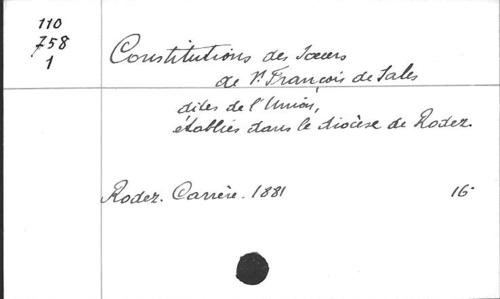 110
758
1
Constitutions des Sœurs
de St François de Sales
dites de l'Union,
établies dans le diocèse de Rodez.
Rodez. Carrère. 1881 16°